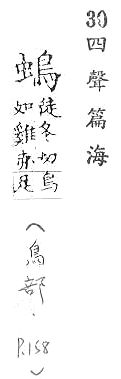 30四聲篇海
䳋
徒冬切鳥
如雞赤足
(鳥部.P.158)